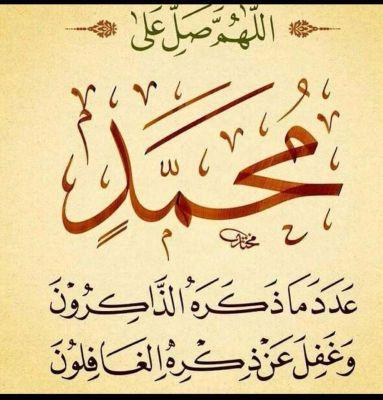 اللَّهُمَّ صَلِّ عَلَىٰ
مُحَمَّدٍ
عَدَدَ مَا ذَكَرَهُ الذَّاكِرُونَ
وَغَفَلَ عَنْ ذِكْرِهِ الغَافِلُونَ